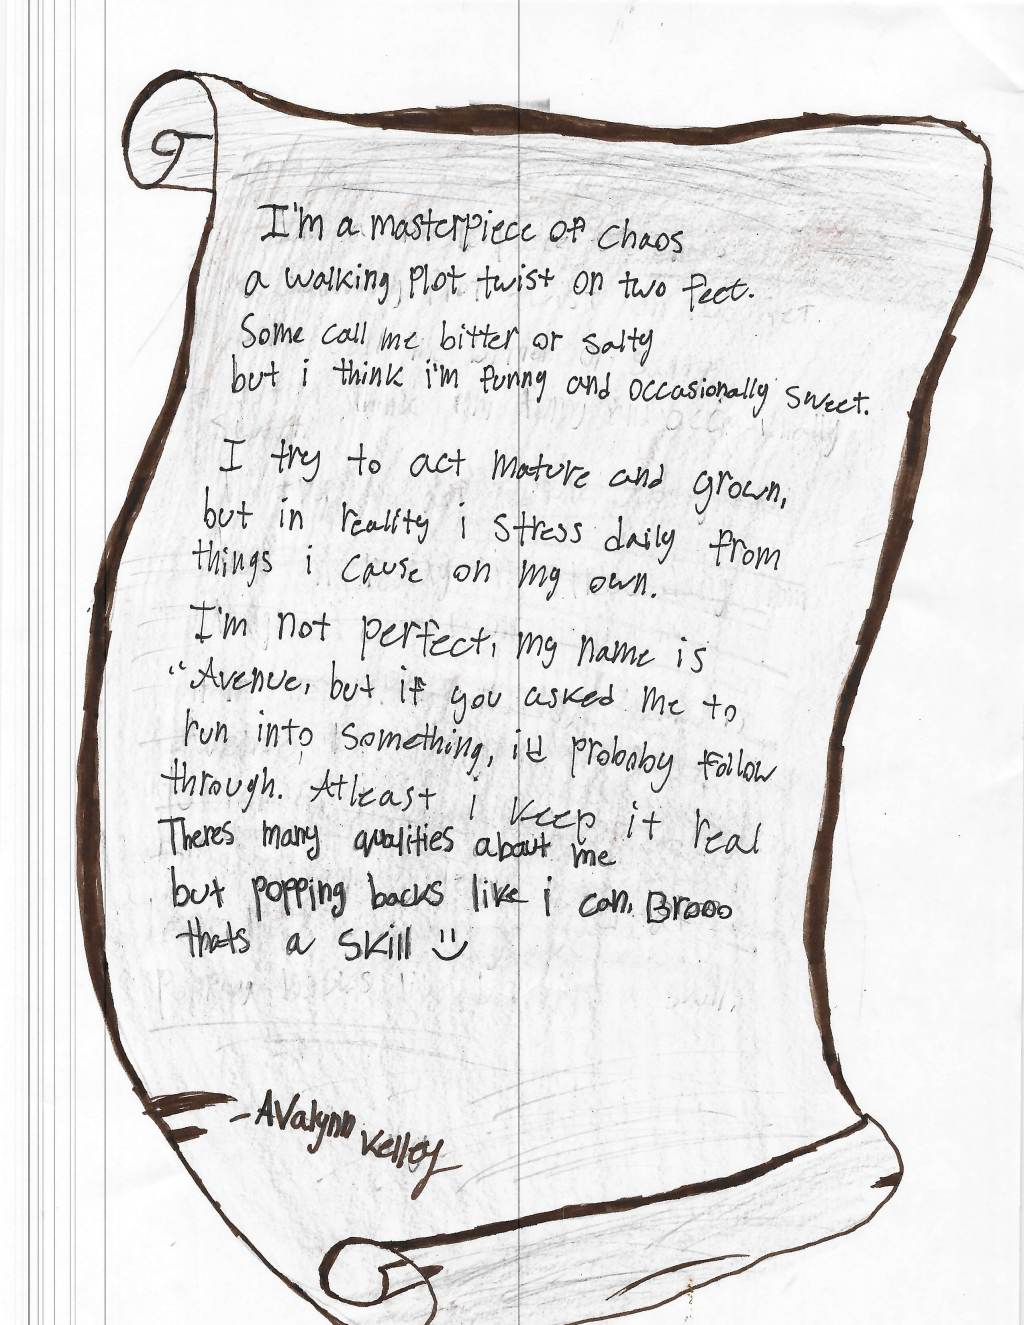 I'm a masterpiece of chaos
a walking plot twist on two feet.
Some call me bitter or salty
but i think i'm funny and occasionally sweet.
I try to act mature and grown,
but in reality i stress daily from
things i cause on my own.
I'm not perfect, my name is
"Avenue, but if you asked me to
run into something, i'd probaby follow
through. Atleast i keep it real
Theres many qualities about me
but popping backs like i can. Brooo
thats a skill :)
-AValynn Kelley